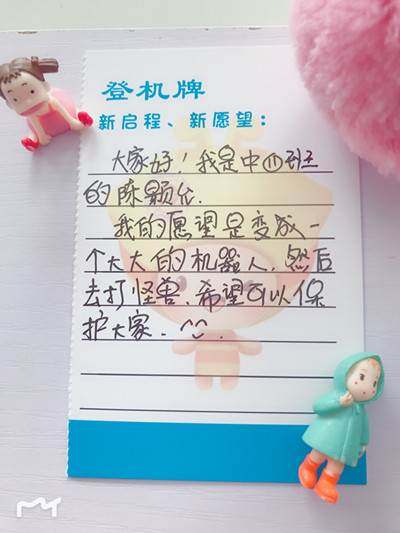 登机牌
新启程、新愿望：
大家好！我是中(4)班
的陈颢允.
我的愿望是变成一
个大大的机器人,然后
去打怪兽.希望可以保
护大家.